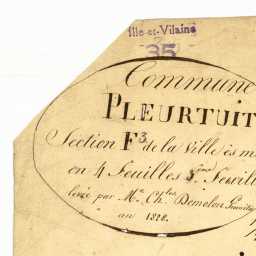 Ille-et-Vilaine
35
Commune
PLEURTUIT
Section F3 de la Ville ès m
en 4 Feuilles 3eme Feuill
levée par Mr. Chles Demolon
an 1828.